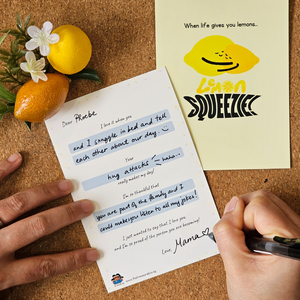 When life gives you lemons..
LEMON
SQUEEZIE!
Dear Phoebe
I love it when you
and I snuggle in bed and tell
each other about our day
Your
hug attacks haha..
really makes my day!
I'm so thankful that
you are part of the family and I
could make you listen to all my jokes!
I just wanted to say that I love you
and I'm so proud of the person you are becoming!
Love, Mama